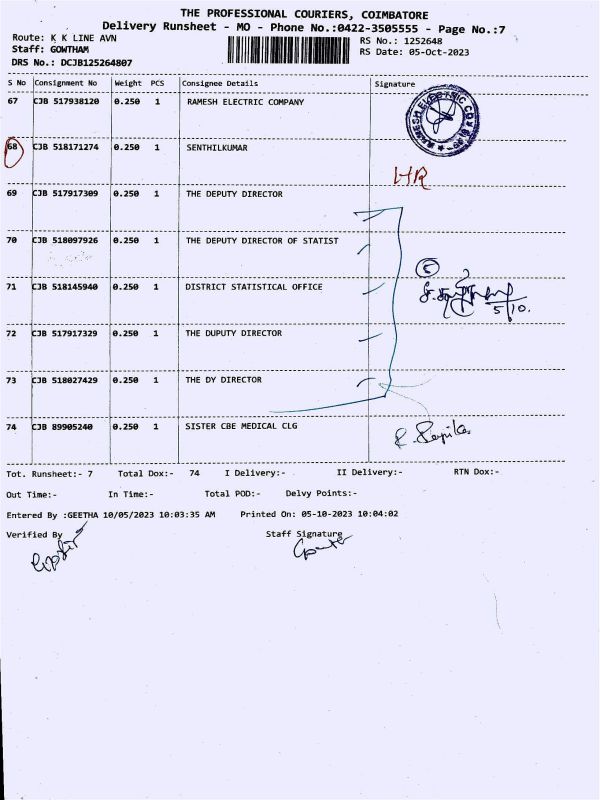 THE PROFESSIONAL COURIERS, COIMBATORE
Delivery Runsheet - MO - Phone No.:0422-3505555 - Page No.:7
Route: K K LINE AVN RS No.: 1252648
Staff: GOWTHAM RS Date: 05-Oct-2023
DRS No.: DCJB125264807
S No Consignment No Weight PCS Consignee Details Signature
67 CJB 517938120 0.250 1 RAMESH ELECTRIC COMPANY
RAMESH ELECTRIC CO
68 CJB 518171274 0.250 1 SENTHILKUMAR
HR
69 CJB 517917309 0.250 1 THE DEPUTY DIRECTOR
70 CJB 518097926 0.250 1 THE DEPUTY DIRECTOR OF STATIST
5
71 CJB 518145940 0.250 1 DISTRICT STATISTICAL OFFICE
5/10.
72 CJB 517917329 0.250 1 THE DUPUTY DIRECTOR
73 CJB 518027429 0.250 1 THE DY DIRECTOR
74 CJB 89905240 0.250 1 SISTER CBE MEDICAL CLG
Tot. Runsheet:- 7 Total Dox:- 74 I Delivery:- II Delivery:- RTN Dox:-
Out Time:- In Time:- Total POD:- Delvy Points:-
Entered By :GEETHA 10/05/2023 10:03:35 AM Printed On: 05-10-2023 10:04:02
Verified By Staff Signature